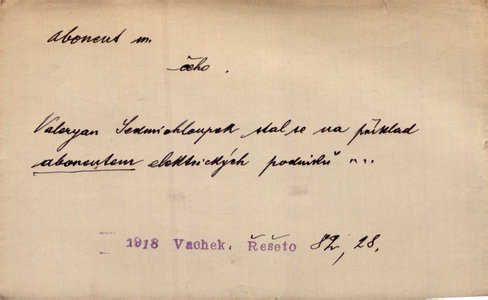 abonent m.
čeho.
Valeryan Sedmichloupek stal se na příklad
abonentem elektrických podniků ...
1918 Vachek. Řešeto 82, 28.